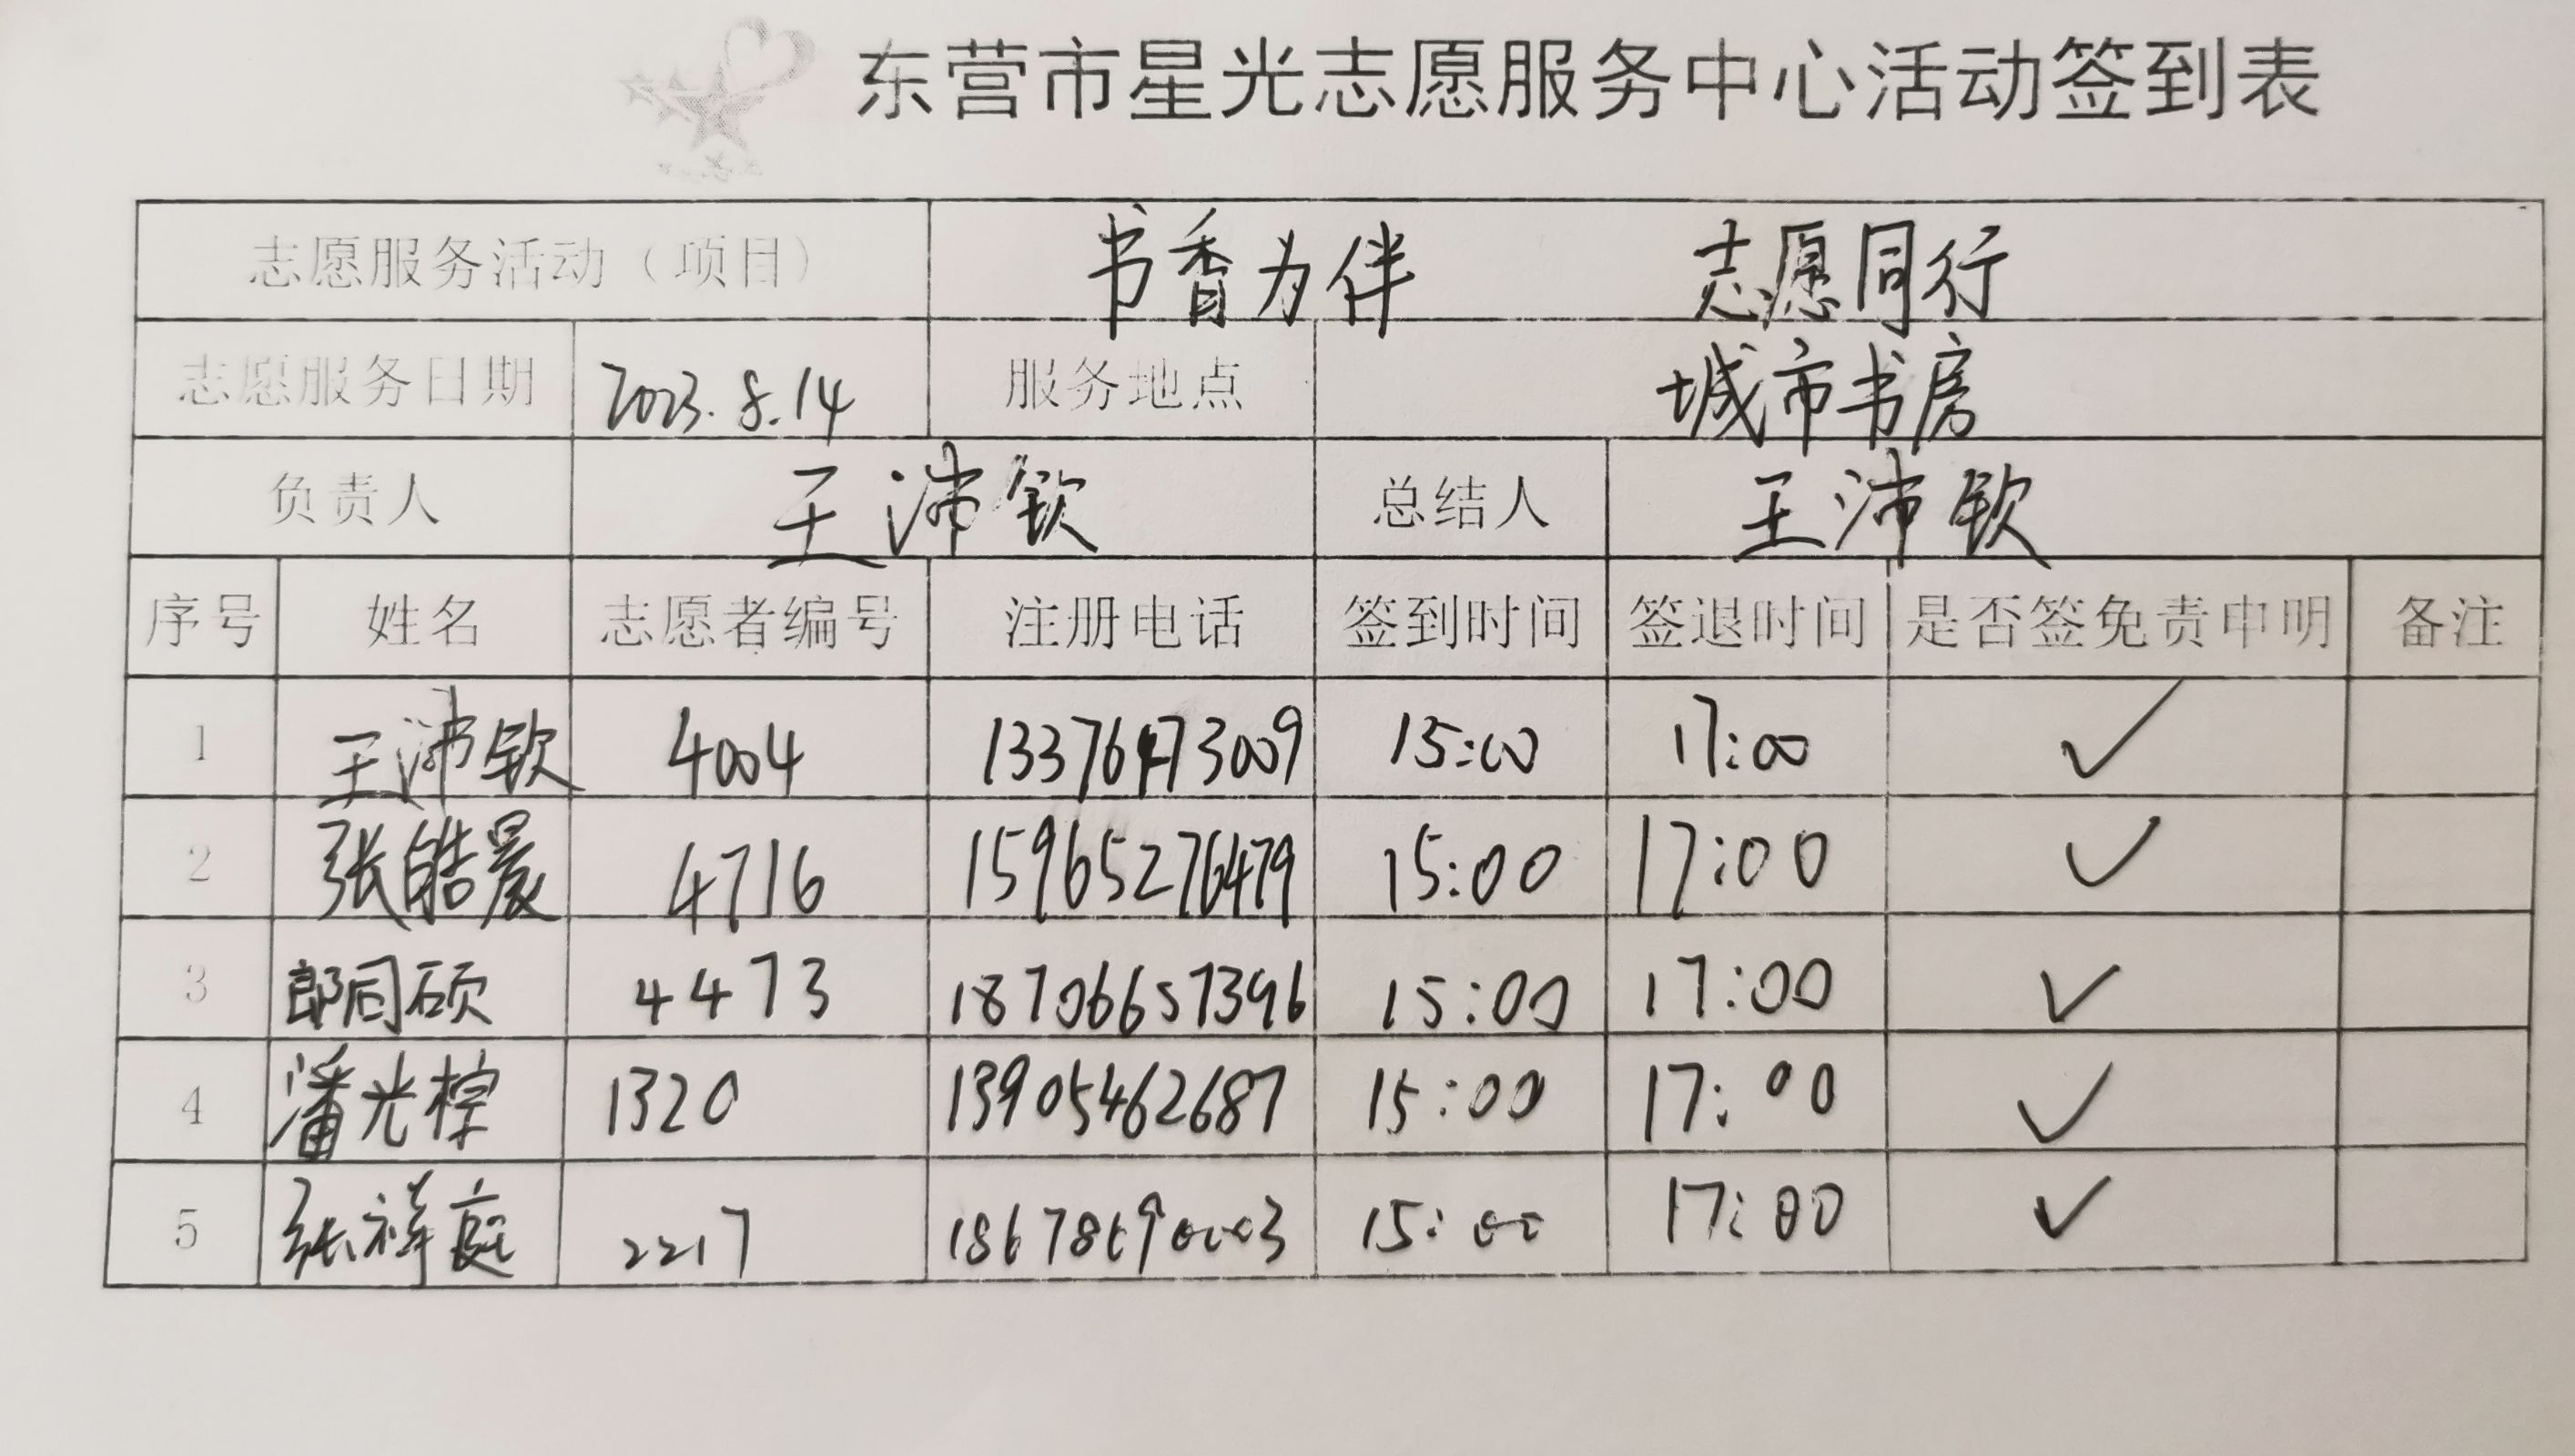 东营市星光志愿服务中心活动签到表
志愿服务活动（项目） 书香为伴 志愿同行
志愿服务日期 2023.8.14 服务地点 城市书房
负责人 王沛钦 总结人 王沛钦
序号 姓名 志愿者编号 注册电话 签到时间 签退时间 是否签免责申明 备注
1 王沛钦 4004 13376473009 15:00 17:00 ✓
2 张皓晨 4716 15965276479 15:00 17:00 ✓
3 郎同硕 4473 18706657396 15:00 17:00 ✓
4 潘光檸 1320 13905462687 15:00 17:00 ✓
5 张祥庭 2217 15:00 17:00 ✓